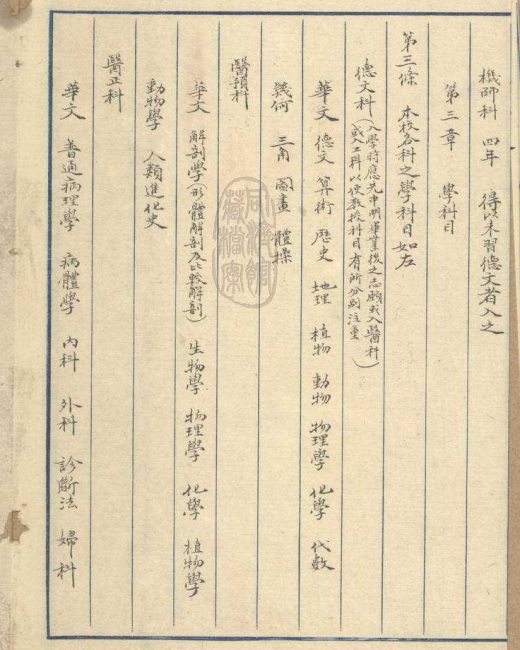 機師科 四年 得以未習德文者入之
第三章 學科目
第三條 本校各科之學科目如左
德文科(入學時應先申明畢業後之志願或入醫科
或入工科以便教授科目有所分別注重)
華文 德文 算術 歷史 地理 植物 動物 物理學 化學 代數
幾何 三角 圖畫 體操
醫預科
華文 解剖學(形體解剖及比較解剖) 生物學 物理學 化學 植物學
動物學 人類進化史
醫正科
華文 普通病理學 病體學 內科 外科 診斷法 婦科